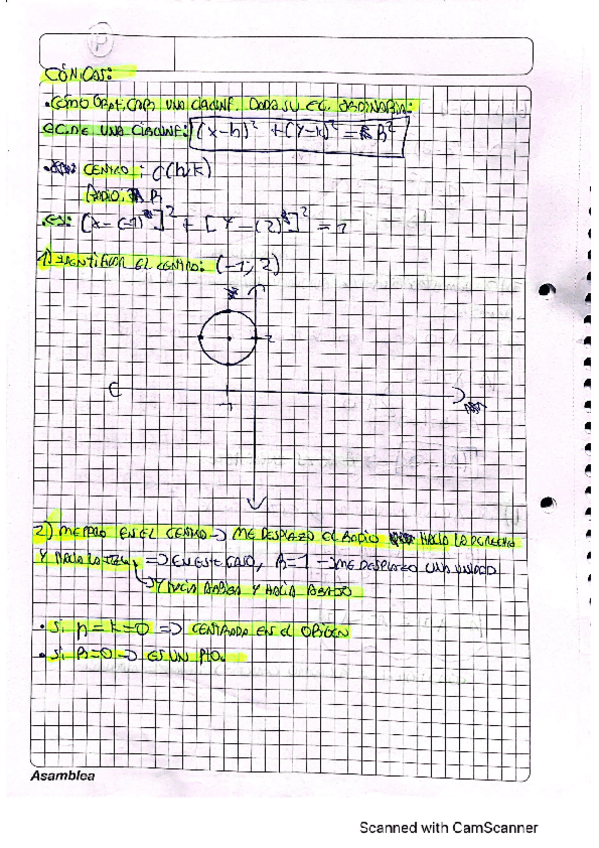 P
CÓNICAS:
•CÓMO GRAFICAR UNA CIRCUNF. DADA SU EC. ORDINARIA:
EC. DE UNA CIRCUNF: (x-h)² + (y-k)² = R²
• CENTRO: C(h,k)
RADIO: R
•EJ: [x-(-1)]² + [y-(2)]² = 1
1) IDENTIFICAR EL CENTRO: (-1, 2)
2
-1
2) ME PARO EN EL CENTRO → ME DESPLAZO EL RADIO HACIA LA DERECHA
Y HACIA LA IZQ. ⇒ EN ESTE CASO, R=1 → ME DESPLAZO UNA UNIDAD
→ Y HACIA ARRIBA Y HACIA ABAJO
• Si h=k=0 ⇒ CENTRADA EN EL ORIGEN
• Si R=0 → ES UN PTO.
Asamblea
Scanned with CamScanner